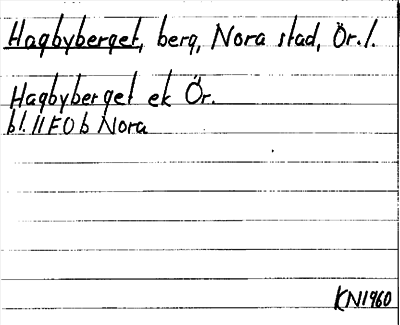 Hagbyberget, berg, Nora stad, Ör. l.
Hagbyberget ek Ör.
bl. 11F0b Nora
KN1960